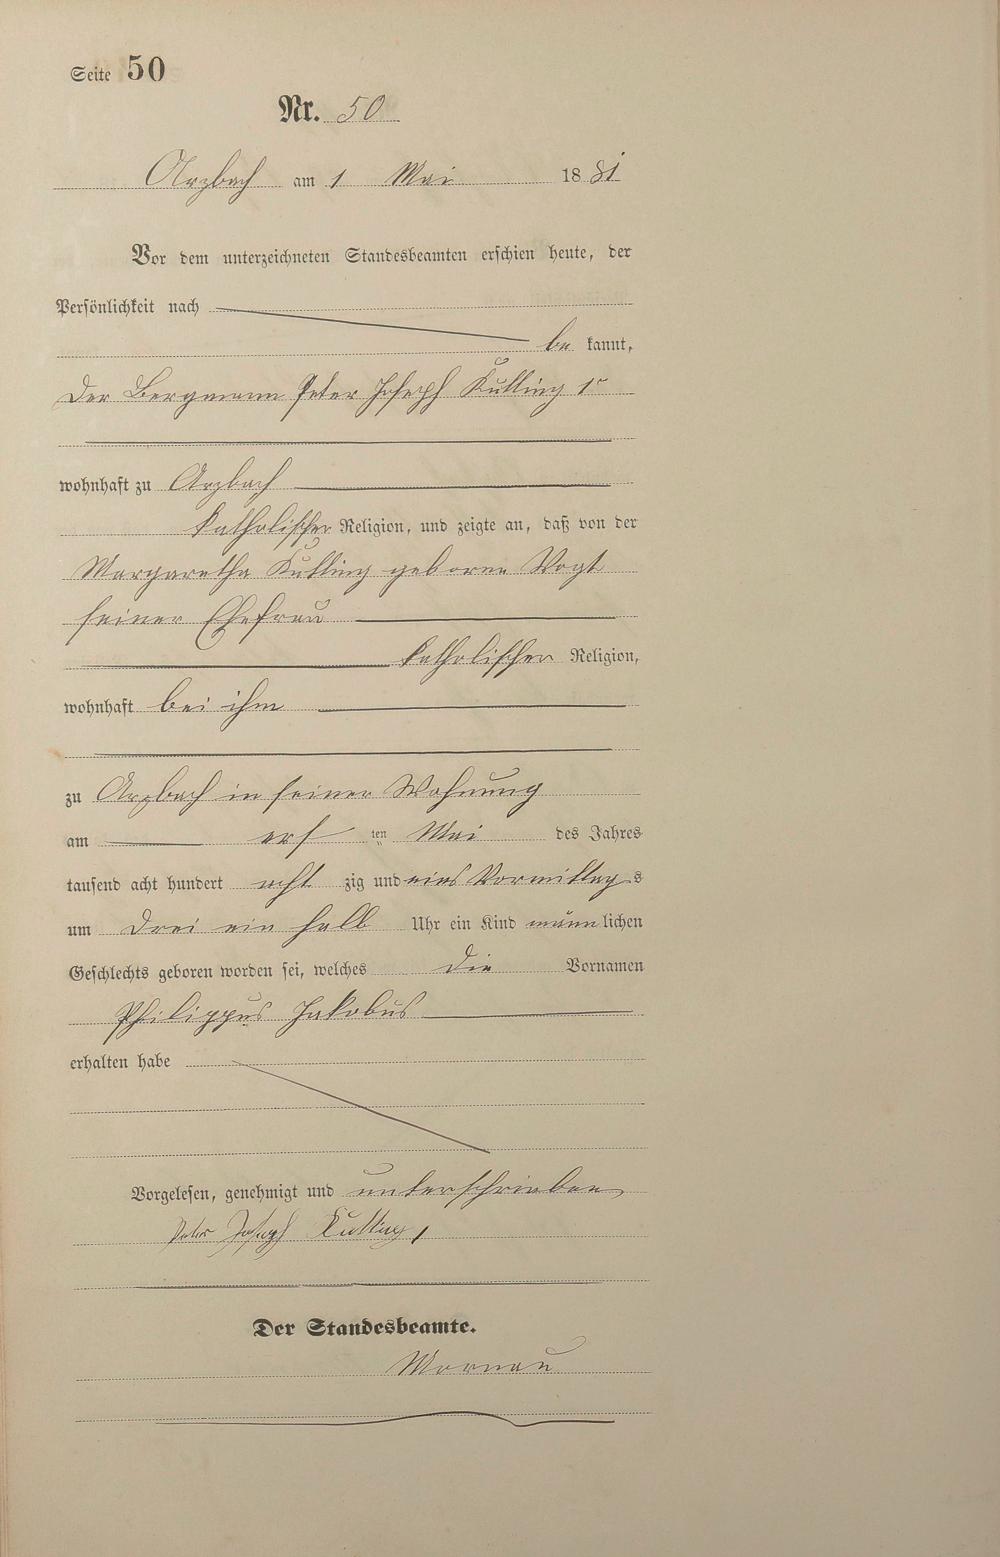 Seite 50
Nr. 50
Arzbach am 1 Mai 1881
Vor dem unterzeichneten Standesbeamten erschien heute, der
Persönlichkeit nach
be kannt,
Der Bergmann Peter Joseph Kutting 1r
wohnhaft zu Arzbach
katholischer Religion, und zeigte an, daß von der
Margaretha Kutting geborene Vogt
seiner Ehefrau
katholischer Religion,
wohnhaft bei ihm
zu Arzbach in seiner Wohnung
am ersten Mai des Jahres
tausend acht hundert acht zig und eins Vormittags
um Drei ein halb Uhr ein Kind männlichen
Geschlechts geboren worden sei, welches die Vornamen
Philippus Jakobus
erhalten habe
Vorgelesen, genehmigt und unterschrieben
Peter Joseph Kutting 1
Der Standesbeamte.